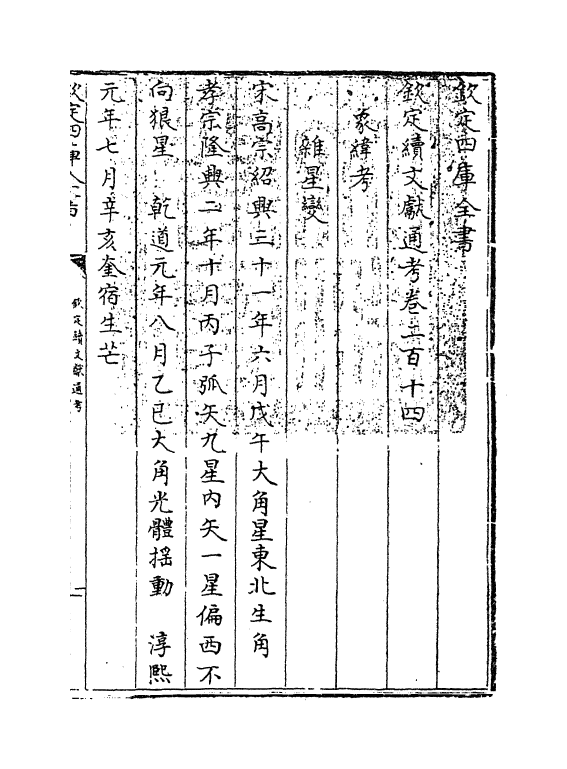 欽定四庫全書
欽定續文獻通考卷二百十四
象緯考
雜星變
宋高宗紹興三十一年六月戊午大角星東北生角
孝宗隆興二年十月丙子弧矢九星內矢一星偏西不
向狼星 乾道元年八月乙巳大角光體揺動 淳熙
元年七月辛亥奎宿生芒
欽定續文獻通考
一